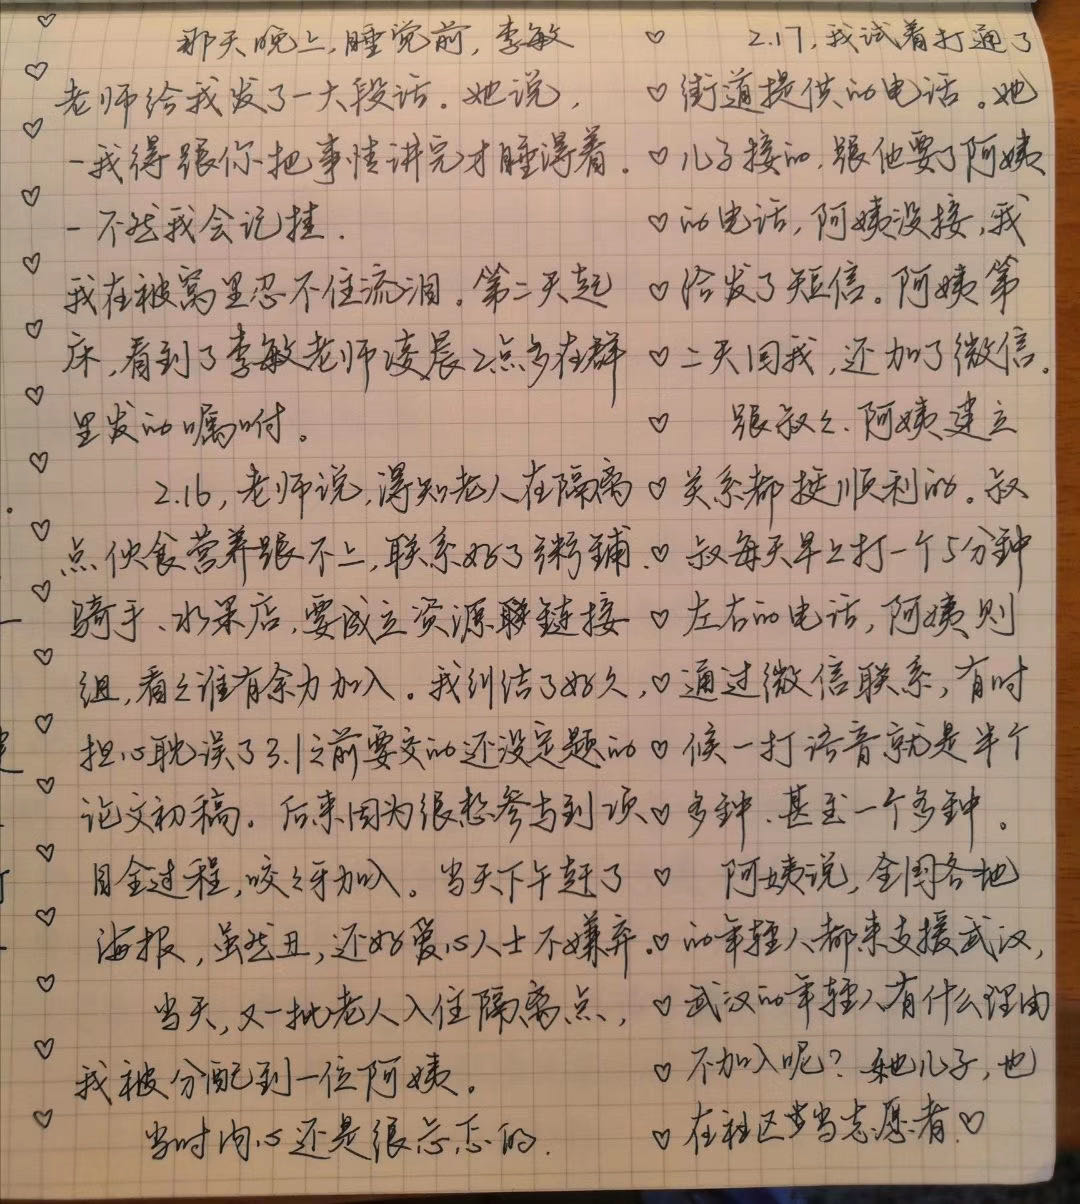 那天晚上,睡觉前,李敏
老师给我发了一大段话。她说,
-我得跟你把事情讲完才睡得着。
-不然我会记挂.
我在被窝里忍不住流泪。第二天起
床,看到了李敏老师凌晨2点多在群
里发的嘱咐。
2.16,老师说,得知老人在隔离
点伙食营养跟不上,联系好了粥铺、
骑手、水果店,要成立资源链接
组,看々谁有余力加入。我纠结了好久,
担心耽误了3.1之前要交的还没定题的
论文初稿。后来因为很想参与到项
目全过程,咬々牙加入。当天下午赶了
海报,虽然丑,还好爱心人士不嫌弃。
当天,又一批老人入住隔离点,
我被分配到一位阿姨。
当时内心还是很忐忑的.
2.17,我试着打通了
街道提供的电话。她
儿子接的,跟他要了阿姨
的电话,阿姨没接,我
给发了短信。阿姨第
二天回我,还加了微信。
跟叔々、阿姨建立
关系都挺顺利的。叔
叔每天早上打一个5分钟
左右的电话,阿姨则
通过微信联系,有时
候一打语音就是半个
多钟、甚至一个多钟。
阿姨说,全国各地
的年轻人都来支援武汉,
武汉的年轻人有什么理由
不加入呢?她儿子,也
在社区当志愿者.♡